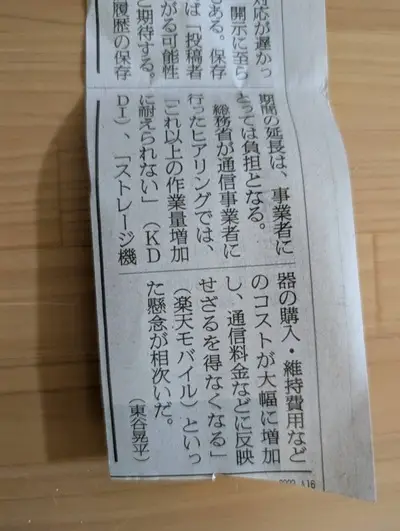 対応が遅かっ
開示に至ら
もある。保存
ば「投稿者
がる可能性
と期待する。
履歴の保存
期間の延長は、事業者に
とっては負担となる。
総務省が通信事業者に
行ったヒアリングでは、
「これ以上の作業量増加
に耐えられない」（KD
DI）、「ストレージ機
器の購入・維持費用など
のコストが大幅に増加
し、通信料金などに反映
せざるを得なくなる」
（楽天モバイル）といっ
た懸念が相次いだ。
（東谷晃平）